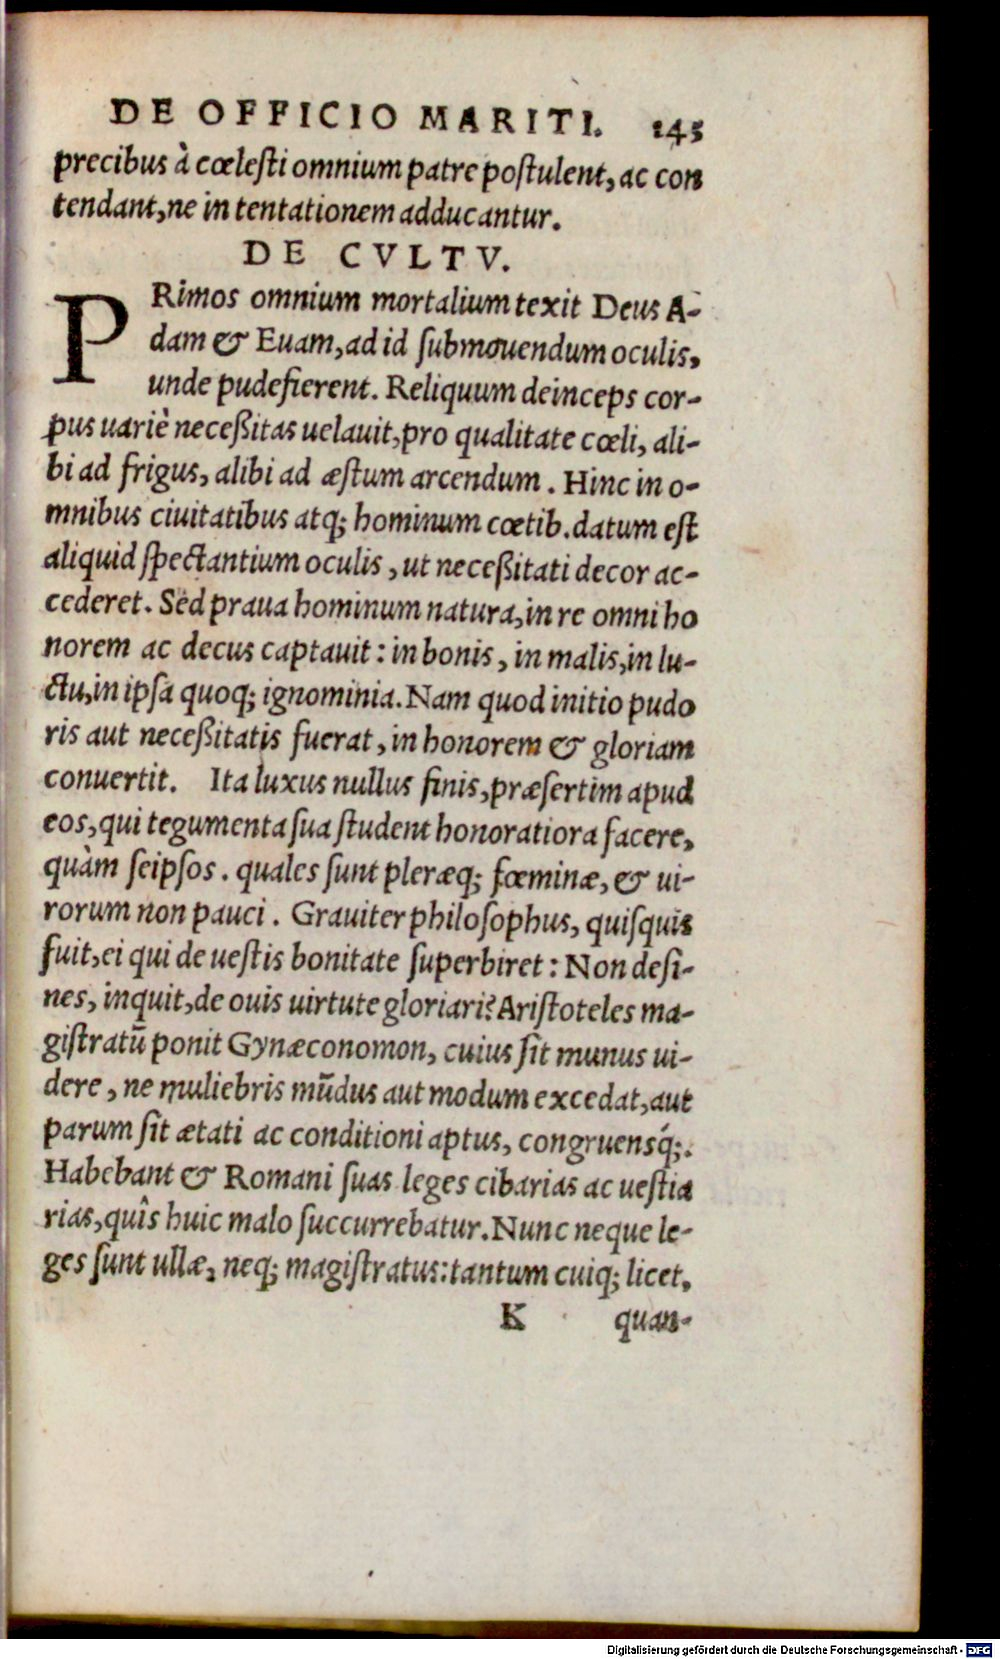 DE OFFICIO MARITI. 145
precibus à cœlesti omnium patre postulent, ac con
tendant, ne in tentationem adducantur.
DE CVLTV.
PRimos omnium mortalium texit Deus A-
dam & Euam, ad id submouendum oculis,
unde pudefierent. Reliquum deinceps cor-
pus uariè neceßitas uelauit, pro qualitate cœli, ali-
bi ad frigus, alibi ad æstum arcendum. Hinc in o-
mnibus ciuitatibus atq; hominum cœtib. datum est
aliquid spectantium oculis, ut neceßitati decor ac-
cederet. Sed praua hominum natura, in re omni ho
norem ac decus captauit: in bonis, in malis, in lu-
ctu, in ipsa quoq; ignominia. Nam quod initio pudo
ris aut neceßitatis fuerat, in honorem & gloriam
conuertit. Ita luxus nullus finis, præsertim apud
eos, qui tegumenta sua student honoratiora facere,
quàm seipsos. quales sunt pleræq; fœminæ, & ui-
rorum non pauci. Grauiter philosophus, quisquis
fuit, ei qui de uestis bonitate superbiret: Non desi-
nes, inquit, de ouis uirtute gloriari? Aristoteles ma-
gistratū ponit Gynæconomon, cuius sit munus ui-
dere, ne muliebris mūdus aut modum excedat, aut
parum sit ætati ac conditioni aptus, congruensq́;.
Habebant & Romani suas leges cibarias ac uestia
rias, quîs huic malo succurrebatur. Nunc neque le-
ges sunt ullæ, neq; magistratus: tantum cuiq; licet,
K quan-
Digitalisierung gefördert durch die Deutsche Forschungsgemeinschaft - DFG